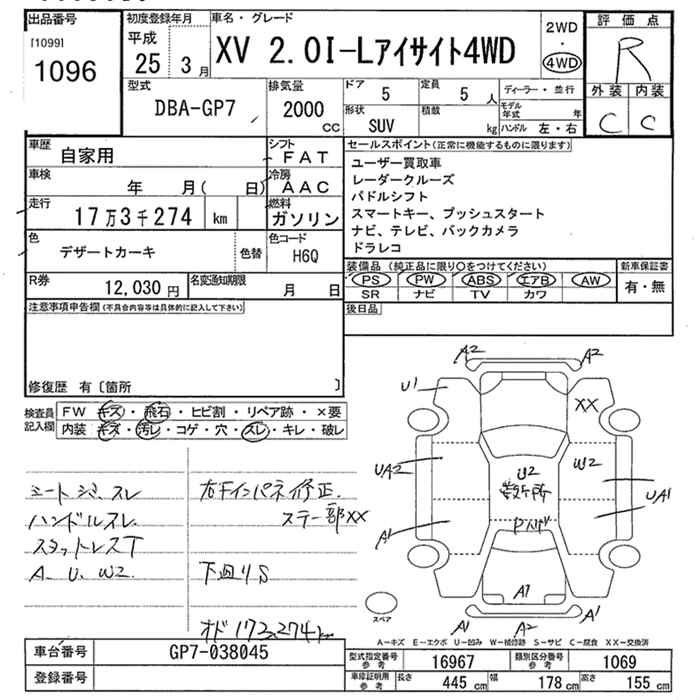 出品番号
[1099]
1096
初度登録年月
平成
25 3月
車名・グレード
XV 2.0I-Lアイサイト4WD
2WD
・
4WD
評価点
R
外装 内装
C C
型式
DBA-GP7
排気量
2000
cc
ドア
5
定員
5 人
形状
SUV
積載
kg
ディーラー・並行
モデル年式 年
ハンドル 左・右
車歴
自家用
シフト
FAT
車検
年 月( 日)
冷房
AAC
走行
17万3千274 km
燃料
ガソリン
色
デザートカーキ
色替
色コード
H6Q
R券
12,030 円
名変通知期限
月 日
セールスポイント(正常に機能するものに限ります)
ユーザー買取車
レーダークルーズ
パドルシフト
スマートキー、プッシュスタート
ナビ、テレビ、バックカメラ
ドラレコ
装備品 (純正品に限り○をつけてください)
PS PW ABS エアB AW
SR ナビ TV カワ
新車保証書
有・無
後日品
注意事項申告欄(不具合内容等は具体的に記入して下さい)
修復歴 有〔箇所 〕
検査員記入欄
FW キズ・飛石・ヒビ割・リペア跡・×要
内装 キズ・汚レ・コゲ・穴・スレ・キレ・破レ
シートシミ、スレ
ハンドルスレ
スタッドレスT
A、U、W2
右Fインパネ修正、
ステー部XX
下廻りS
オド 173,274km
A2 A2
U1
XX
UA2
U2
W2
UA1
A1
Pハゲ
A1
A1 A2 A1
スペア
A-キズ E-エクボ U-凹み W-補修跡 S-サビ C-腐食 XX-交換済
車台番号
GP7-038045
登録番号
型式指定番号 参考
16967
類別区分番号 参考
1069
車庫証明用 参考
長さ 445 cm 幅 178 cm 高さ 155 cm